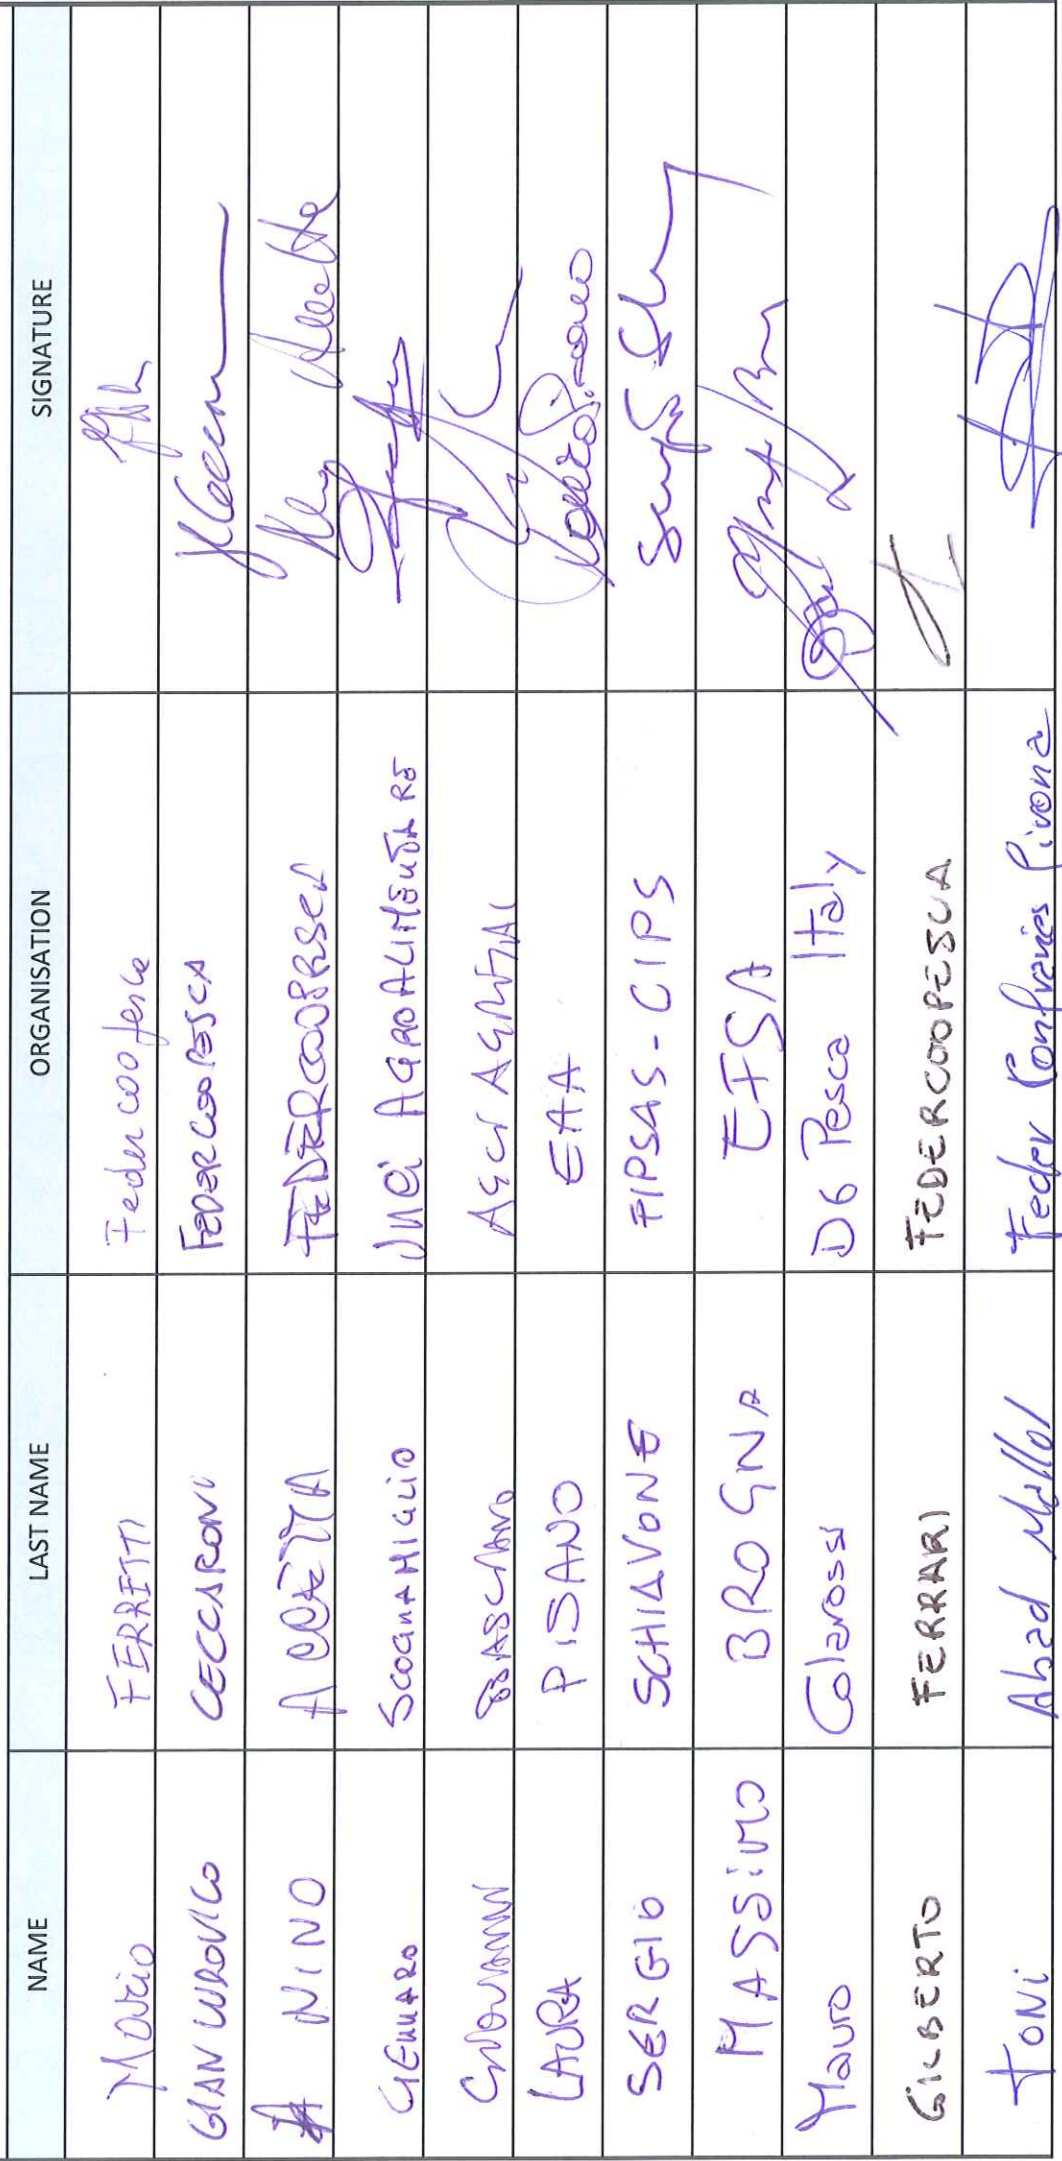 NAME LAST NAME ORGANISATION SIGNATURE
Mario FERRETTI Federcoopesca
GIAN LUDOVICO CECCARONI FEDERCOOPESCA
NINO ACCETTA FEDERCOOPESCA
GENNARO SCOGNAMIGLIO UNCI AGROALIMENTARE
GIOVANNI BASCIANO AGCI AGRITAL
LAURA PISANO EAA
SERGIO SCHIAVONE FIPSAS-CIPS
MASSIMO BROGNA EFSA
Mauro Colarossi D6 Pesca Italy
GILBERTO FERRARI FEDERCOOPESCA
TONI Abad Mallol Feder Confraries Girona